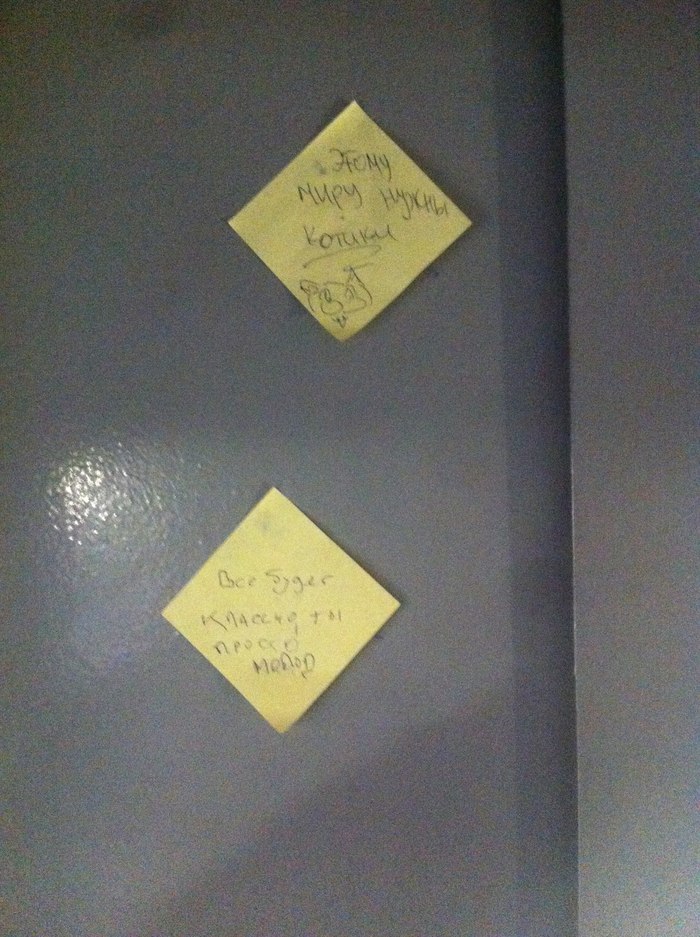 Этому
миру нужны
котики
Все будет
классно ты
просто
молод